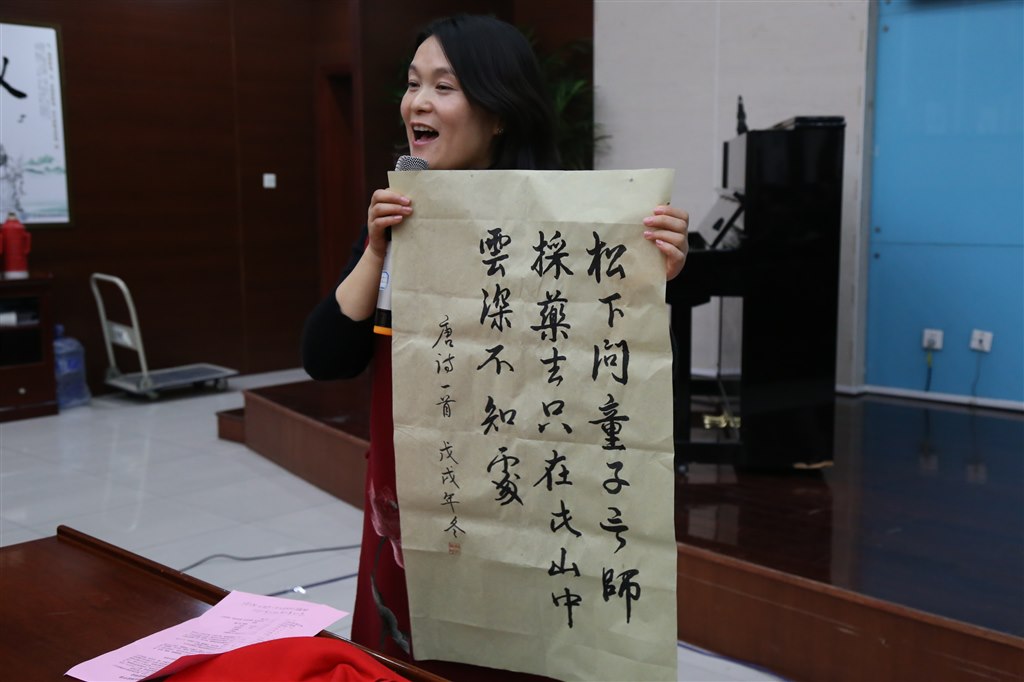 松下问童子言師
採藥去只在此山中
雲深不知處
唐诗一首 戊戌年冬